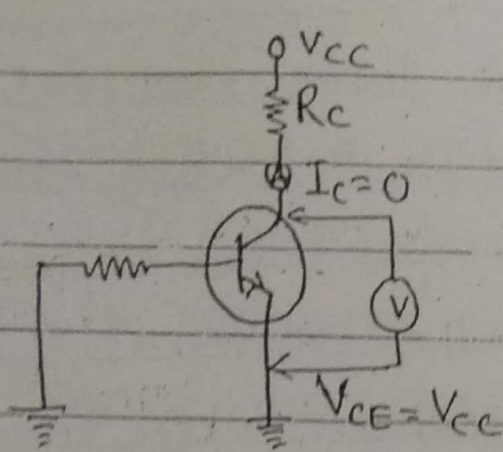 VCC
RC
A
IC=0
V
VCE=VCC